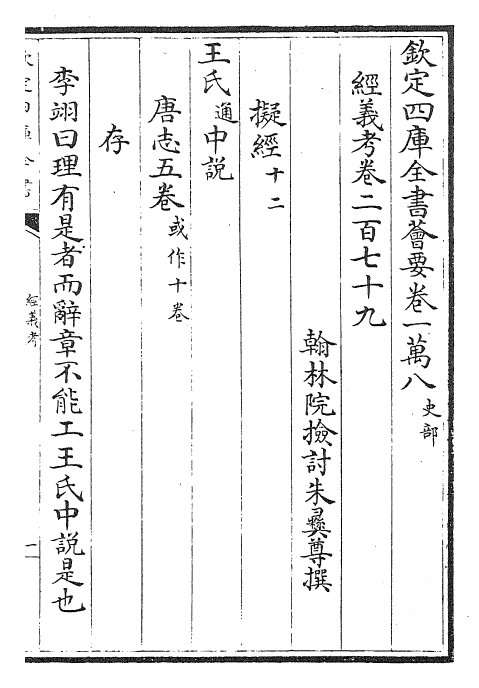 欽定四庫全書薈要卷一萬八史部
經義考卷二百七十九
翰林院檢討朱彝尊撰
擬經十二
王氏通中説
唐志五卷或作十卷
存
李翊曰理有是者而辭章不能工王氏中説是也
經義考
一